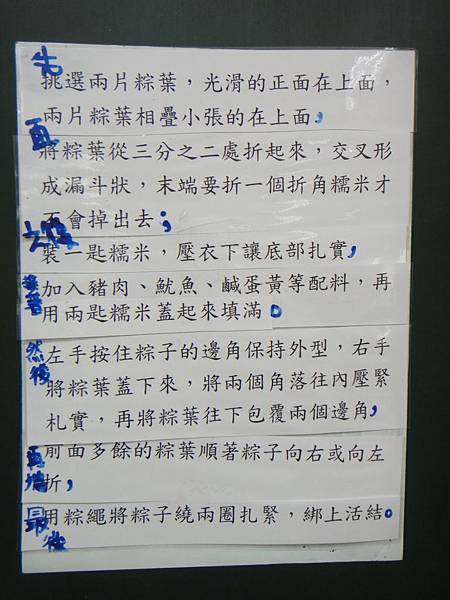 先挑選兩片粽葉，光滑的正面在上面，
兩片粽葉相疊小張的在上面，
再將粽葉從三分之二處折起來，交叉形
成漏斗狀，末端要折一個折角糯米才
不會掉出去；
之後裝一匙糯米，壓衣下讓底部扎實，
接著加入豬肉、魷魚、鹹蛋黃等配料，再
用兩匙糯米蓋起來填滿。
然後左手按住粽子的邊角保持外型，右手
將粽葉蓋下來，將兩個角落往內壓緊
札實，再將粽葉往下包覆兩個邊角，
再將前面多餘的粽葉順著粽子向右或向左
折，
最後用粽繩將粽子繞兩圈扎緊，綁上活結。